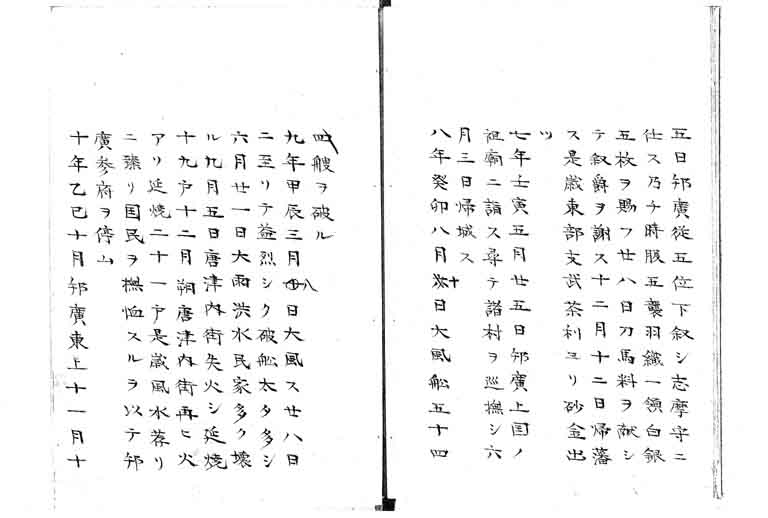 五日邦廣從五位下叙シ志摩守ニ
仕ス乃チ時服五襲羽織一領白銀
五枚ヲ賜フ廿八日刀馬料ヲ献シ
テ叙爵ヲ謝ス十二月十二日帰藩
ス是歳東部支武茶利ヨリ砂金出
ツ
七年壬寅五月廿五日邦廣上国ノ
祖廟ニ詣ス尋テ諸村ヲ巡撫シ六
月三日帰城ス
八年癸卯八月十日大風船五十四
艘ヲ破ル
九年甲辰三月八日大風ス廿八日
ニ至リテ益烈シク破船太タ多シ
六月廿一日大雨洪水民家多ク壊
ル九月五日唐津内街失火シ延焼
十九戸十二月朔唐津内街再ヒ火
アリ延焼二十一戸是歳風水荐リ
ニ臻リ国民ヲ撫恤スルヲ以テ邦
廣参府ヲ停ム
十年乙巳十月邦廣東上十一月十